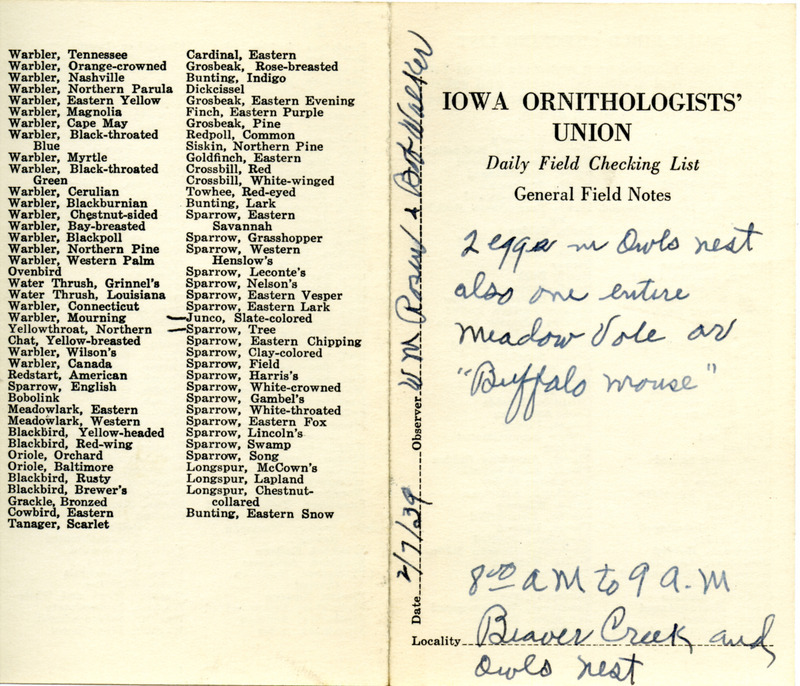 Warbler, Tennessee
Warbler, Orange-crowned
Warbler, Nashville
Warbler, Northern Parula
Warbler, Eastern Yellow
Warbler, Magnolia
Warbler, Cape May
Warbler, Black-throated
Blue
Warbler, Myrtle
Warbler, Black-throated
Green
Warbler, Cerulian
Warbler, Blackburnian
Warbler, Chestnut-sided
Warbler, Bay-breasted
Warbler, Blackpoll
Warbler, Northern Pine
Warbler, Western Palm
Ovenbird
Water Thrush, Grinnel's
Water Thrush, Louisiana
Warbler, Connecticut
Warbler, Mourning
Yellowthroat, Northern
Chat, Yellow-breasted
Warbler, Wilson's
Warbler, Canada
Redstart, American
Sparrow, English
Bobolink
Meadowlark, Eastern
Meadowlark, Western
Blackbird, Yellow-headed
Blackbird, Red-wing
Oriole, Orchard
Oriole, Baltimore
Blackbird, Rusty
Blackbird, Brewer's
Grackle, Bronzed
Cowbird, Eastern
Tanager, Scarlet
Cardinal, Eastern
Grosbeak, Rose-breasted
Bunting, Indigo
Dickcissel
Grosbeak, Eastern Evening
Finch, Eastern Purple
Grosbeak, Pine
Redpoll, Common
Siskin, Northern Pine
Goldfinch, Eastern
Crossbill, Red
Crossbill, White-winged
Towhee, Red-eyed
Bunting, Lark
Sparrow, Eastern
Savannah
Sparrow, Grasshopper
Sparrow, Western
Henslow's
Sparrow, Leconte's
Sparrow, Nelson's
Sparrow, Eastern Vesper
Sparrow, Eastern Lark
Junco, Slate-colored
Sparrow, Tree
Sparrow, Eastern Chipping
Sparrow, Clay-colored
Sparrow, Field
Sparrow, Harris's
Sparrow, White-crowned
Sparrow, Gambel's
Sparrow, White-throated
Sparrow, Eastern Fox
Sparrow, Lincoln's
Sparrow, Swamp
Sparrow, Song
Longspur, McCown's
Longspur, Lapland
Longspur, Chestnut-
collared
Bunting, Eastern Snow
Date 2/7/39 Observer Wm Rosene & Bob Walker
IOWA ORNITHOLOGISTS'
UNION
Daily Field Checking List
General Field Notes
2 eggs in Owls nest
also one entire
Meadow Vole or
"Buffalo mouse"
8:00 AM to 9 A.M
Locality Beaver Creek and
Owls nest